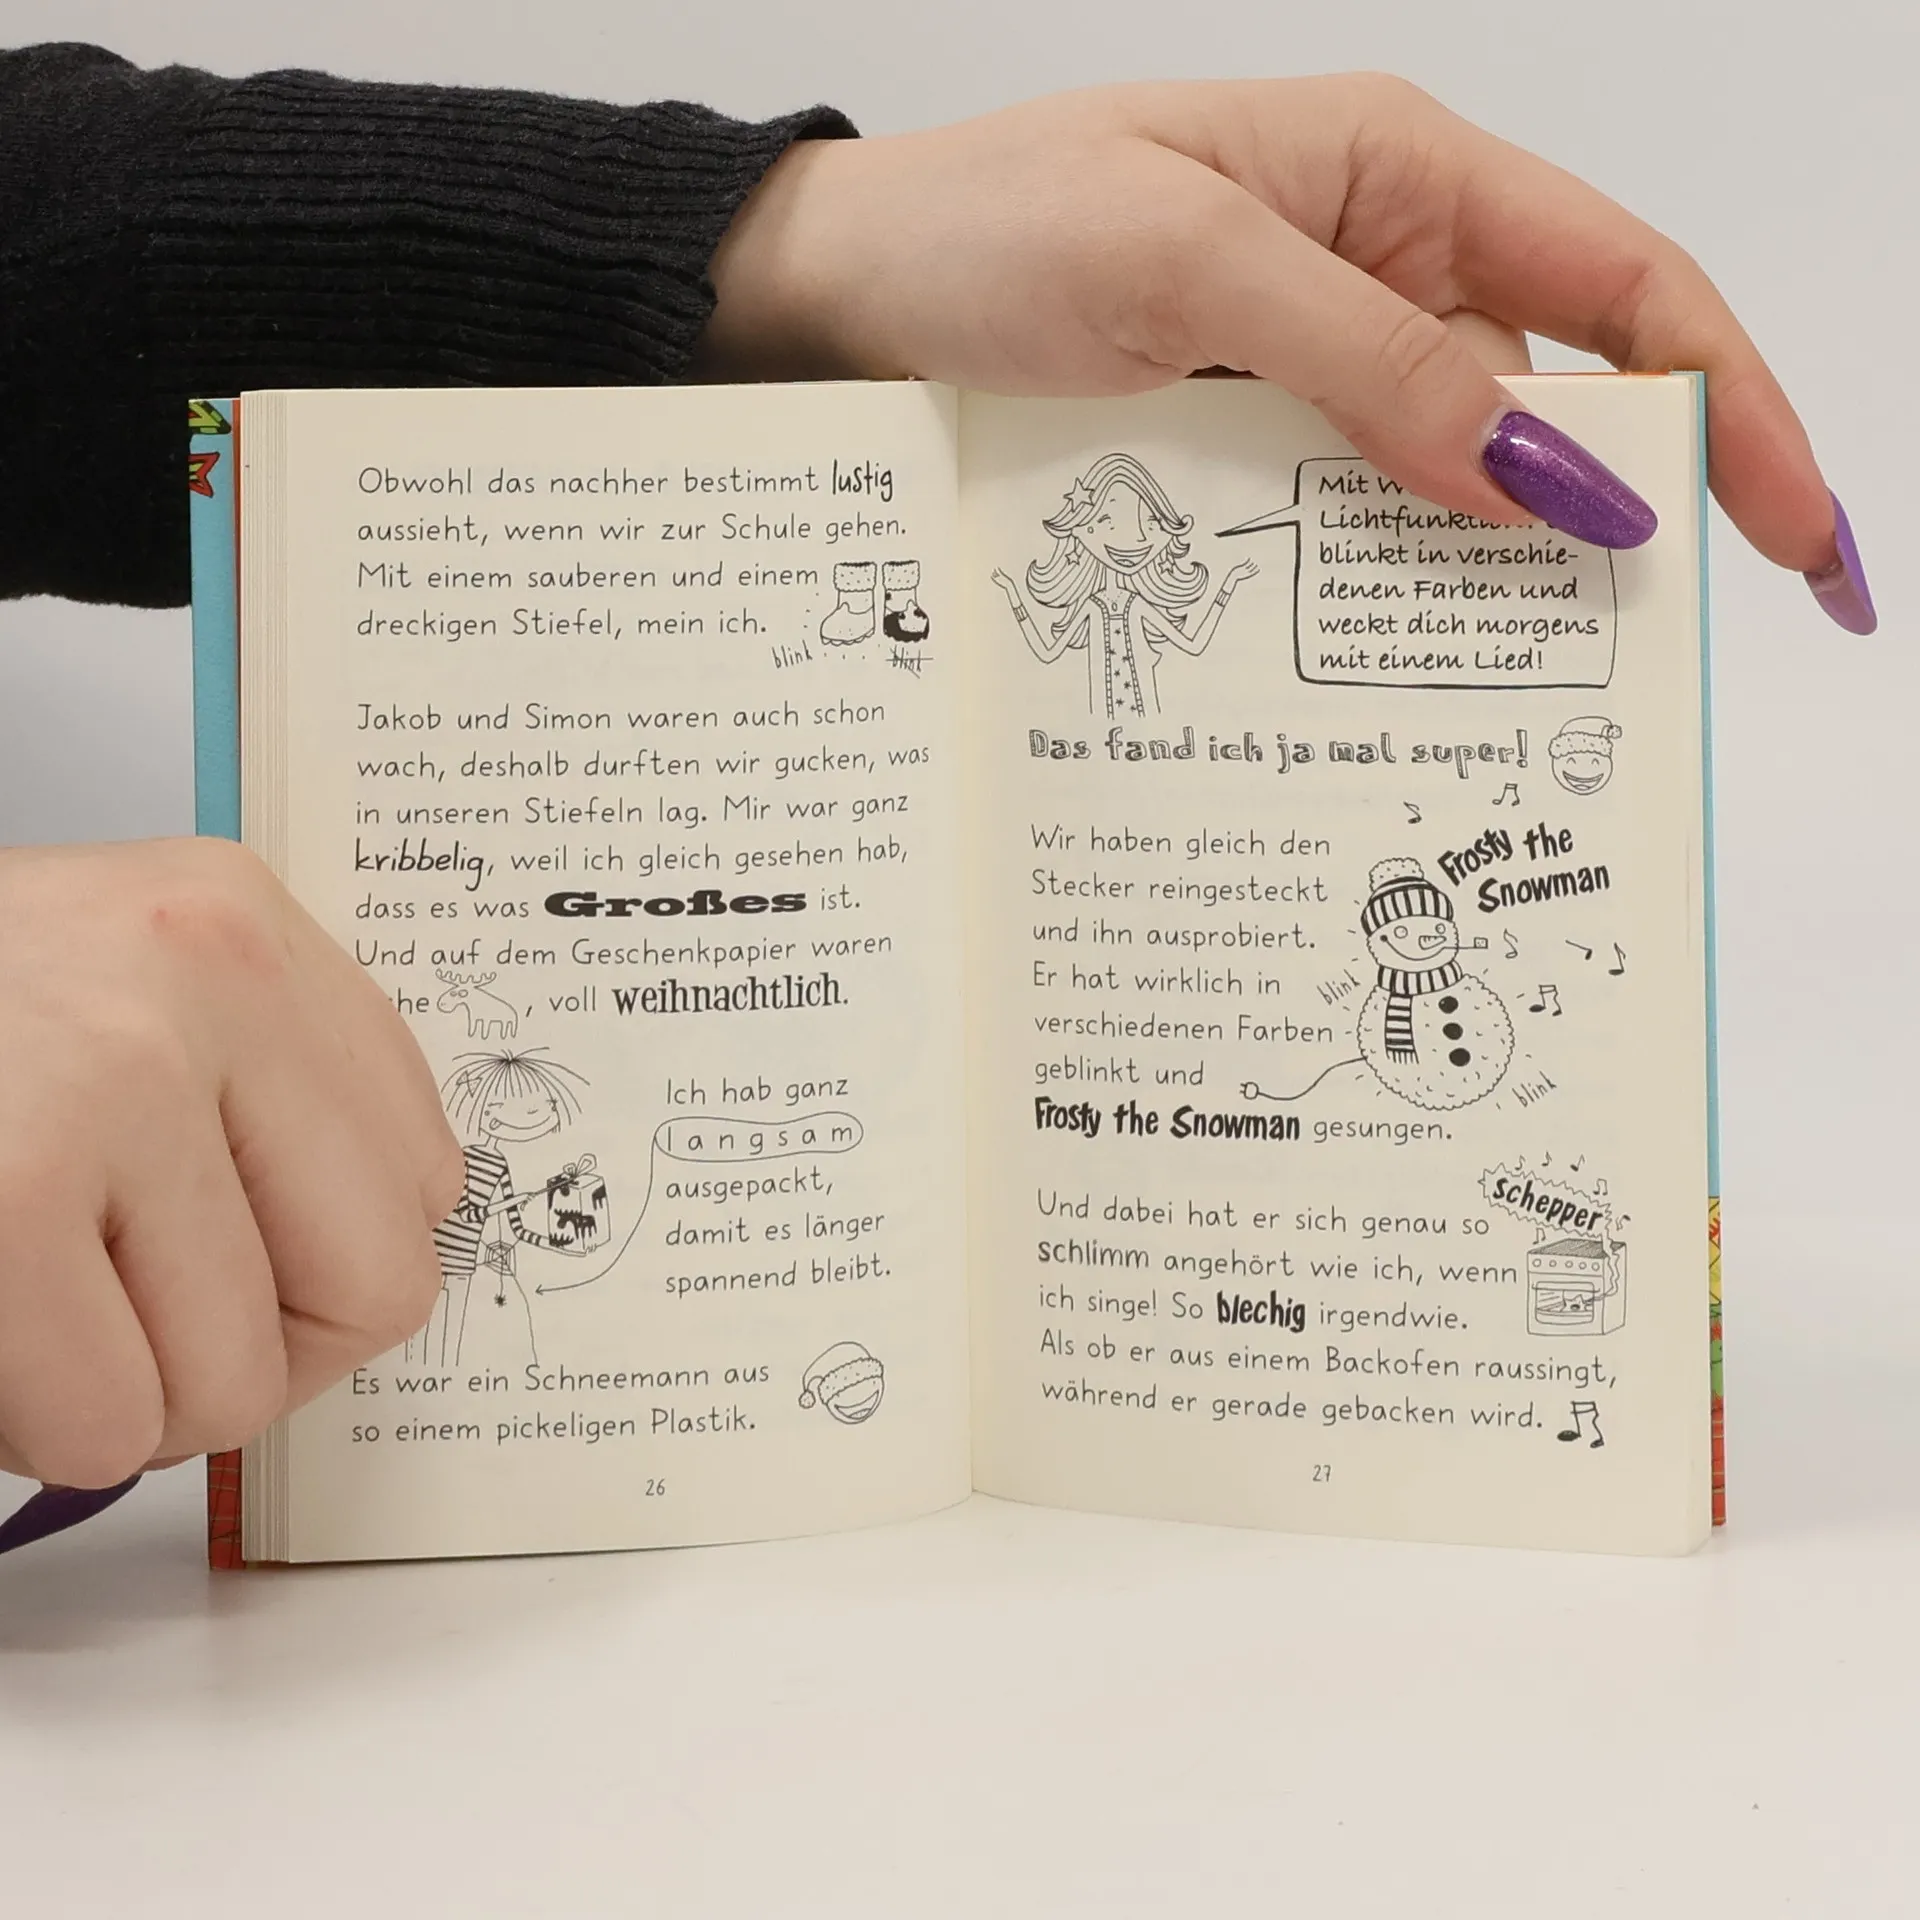 Obwohl das nachher bestimmt lustig
aussieht, wenn wir zur Schule gehen.
Mit einem sauberen und einem
dreckigen Stiefel, mein ich.
blink blink
Jakob und Simon waren auch schon
wach, deshalb durften wir gucken, was
in unseren Stiefeln lag. Mir war ganz
kribbelig, weil ich gleich gesehen hab,
dass es was Großes ist.
Und auf dem Geschenkpapier waren
, voll weihnachtlich.
Ich hab ganz
langsam
ausgepackt,
damit es länger
spannend bleibt.
Es war ein Schneemann aus
so einem pickeligen Plastik.
26
Mit
blinkt in verschie-
denen Farben und
weckt dich morgens
mit einem Lied!
Das fand ich ja mal super!
Frosty the
Snowman
Wir haben gleich den
Stecker reingesteckt
und ihn ausprobiert.
Er hat wirklich in
blink
verschiedenen Farben
geblinkt und
blink
Frosty the Snowman gesungen.
schepper
Und dabei hat er sich genau so
schlimm angehört wie ich, wenn
ich singe! So blechig irgendwie.
Als ob er aus einem Backofen raussingt,
während er gerade gebacken wird.
27